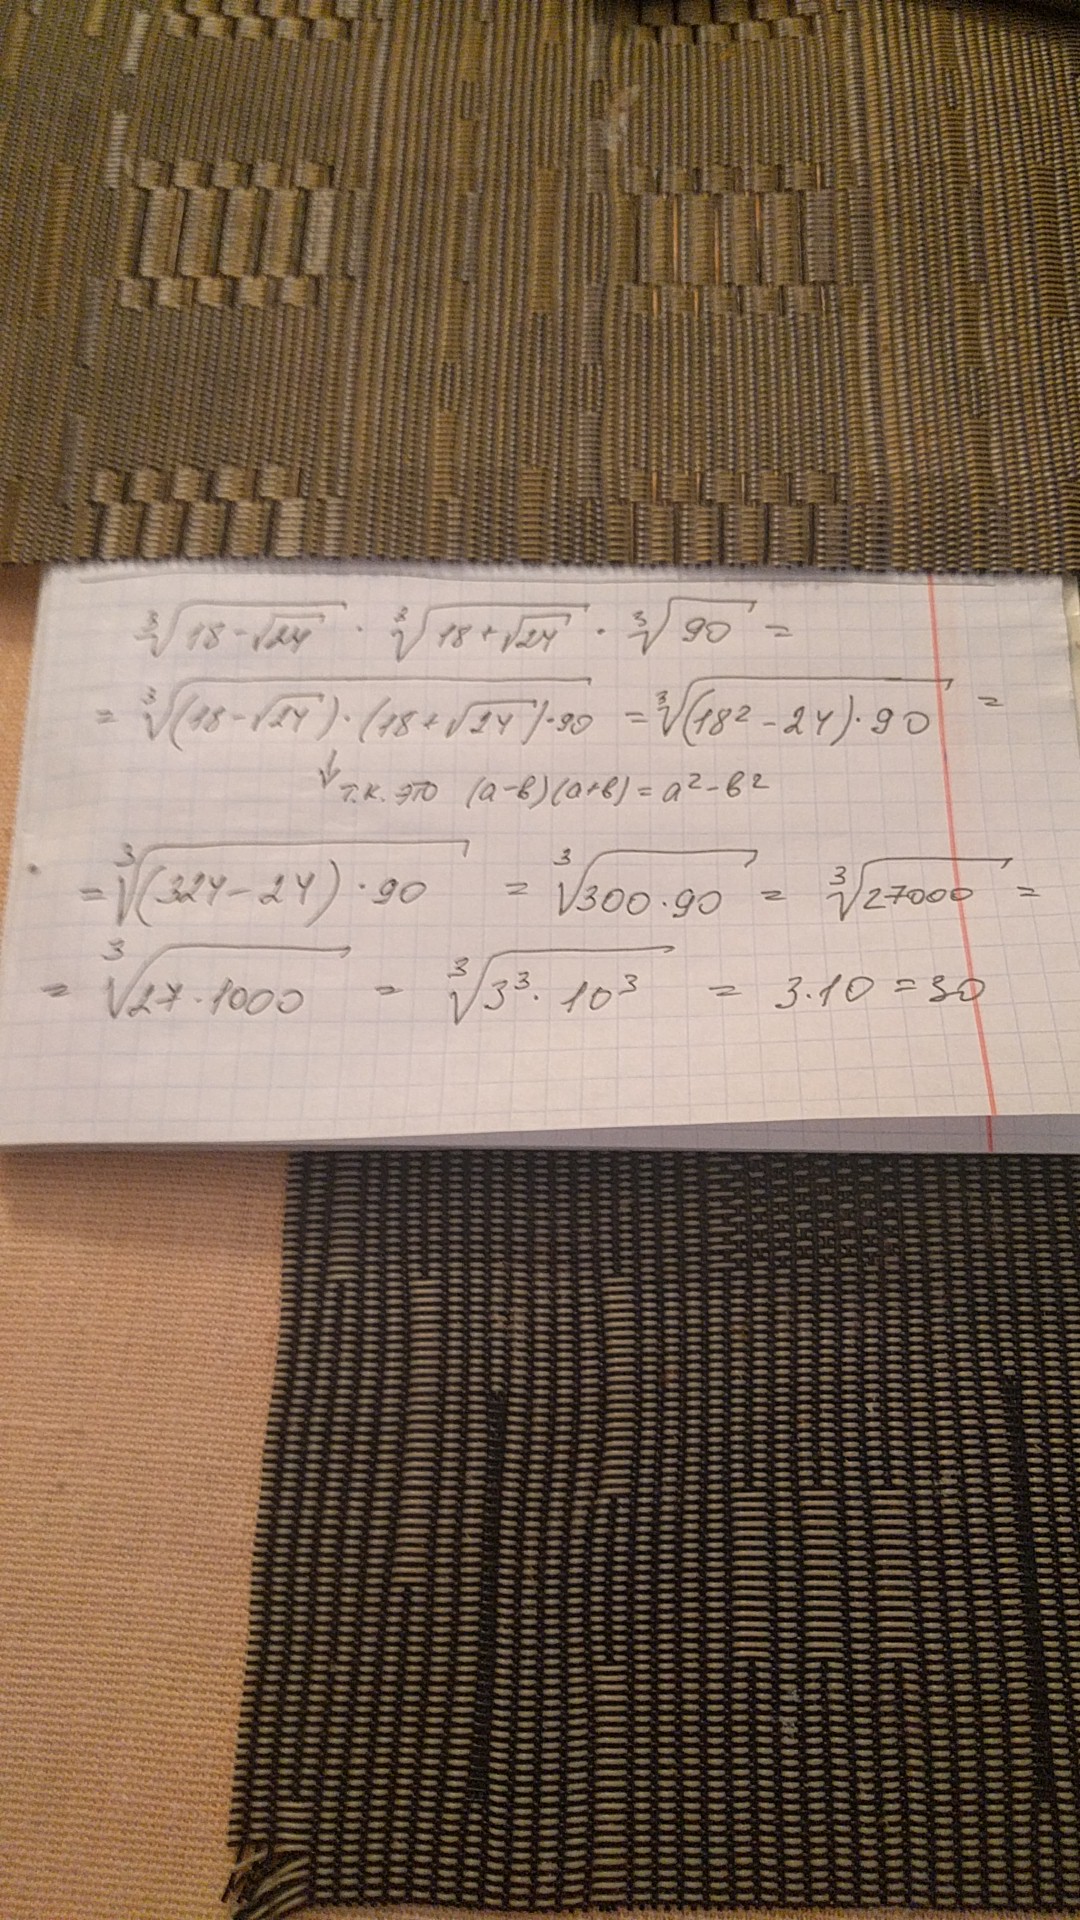 ∛(18-√24) · ∛(18+√24) · ∛90 =
= ∛((18-√24)·(18+√24)·90) = ∛((18²-24)·90) =
↓ т.к. это (a-b)(a+b) = a²-b²
= ∛((324-24)·90) = ∛(300·90) = ∛27000 =
= ∛(27·1000) = ∛(3³·10³) = 3·10 = 30